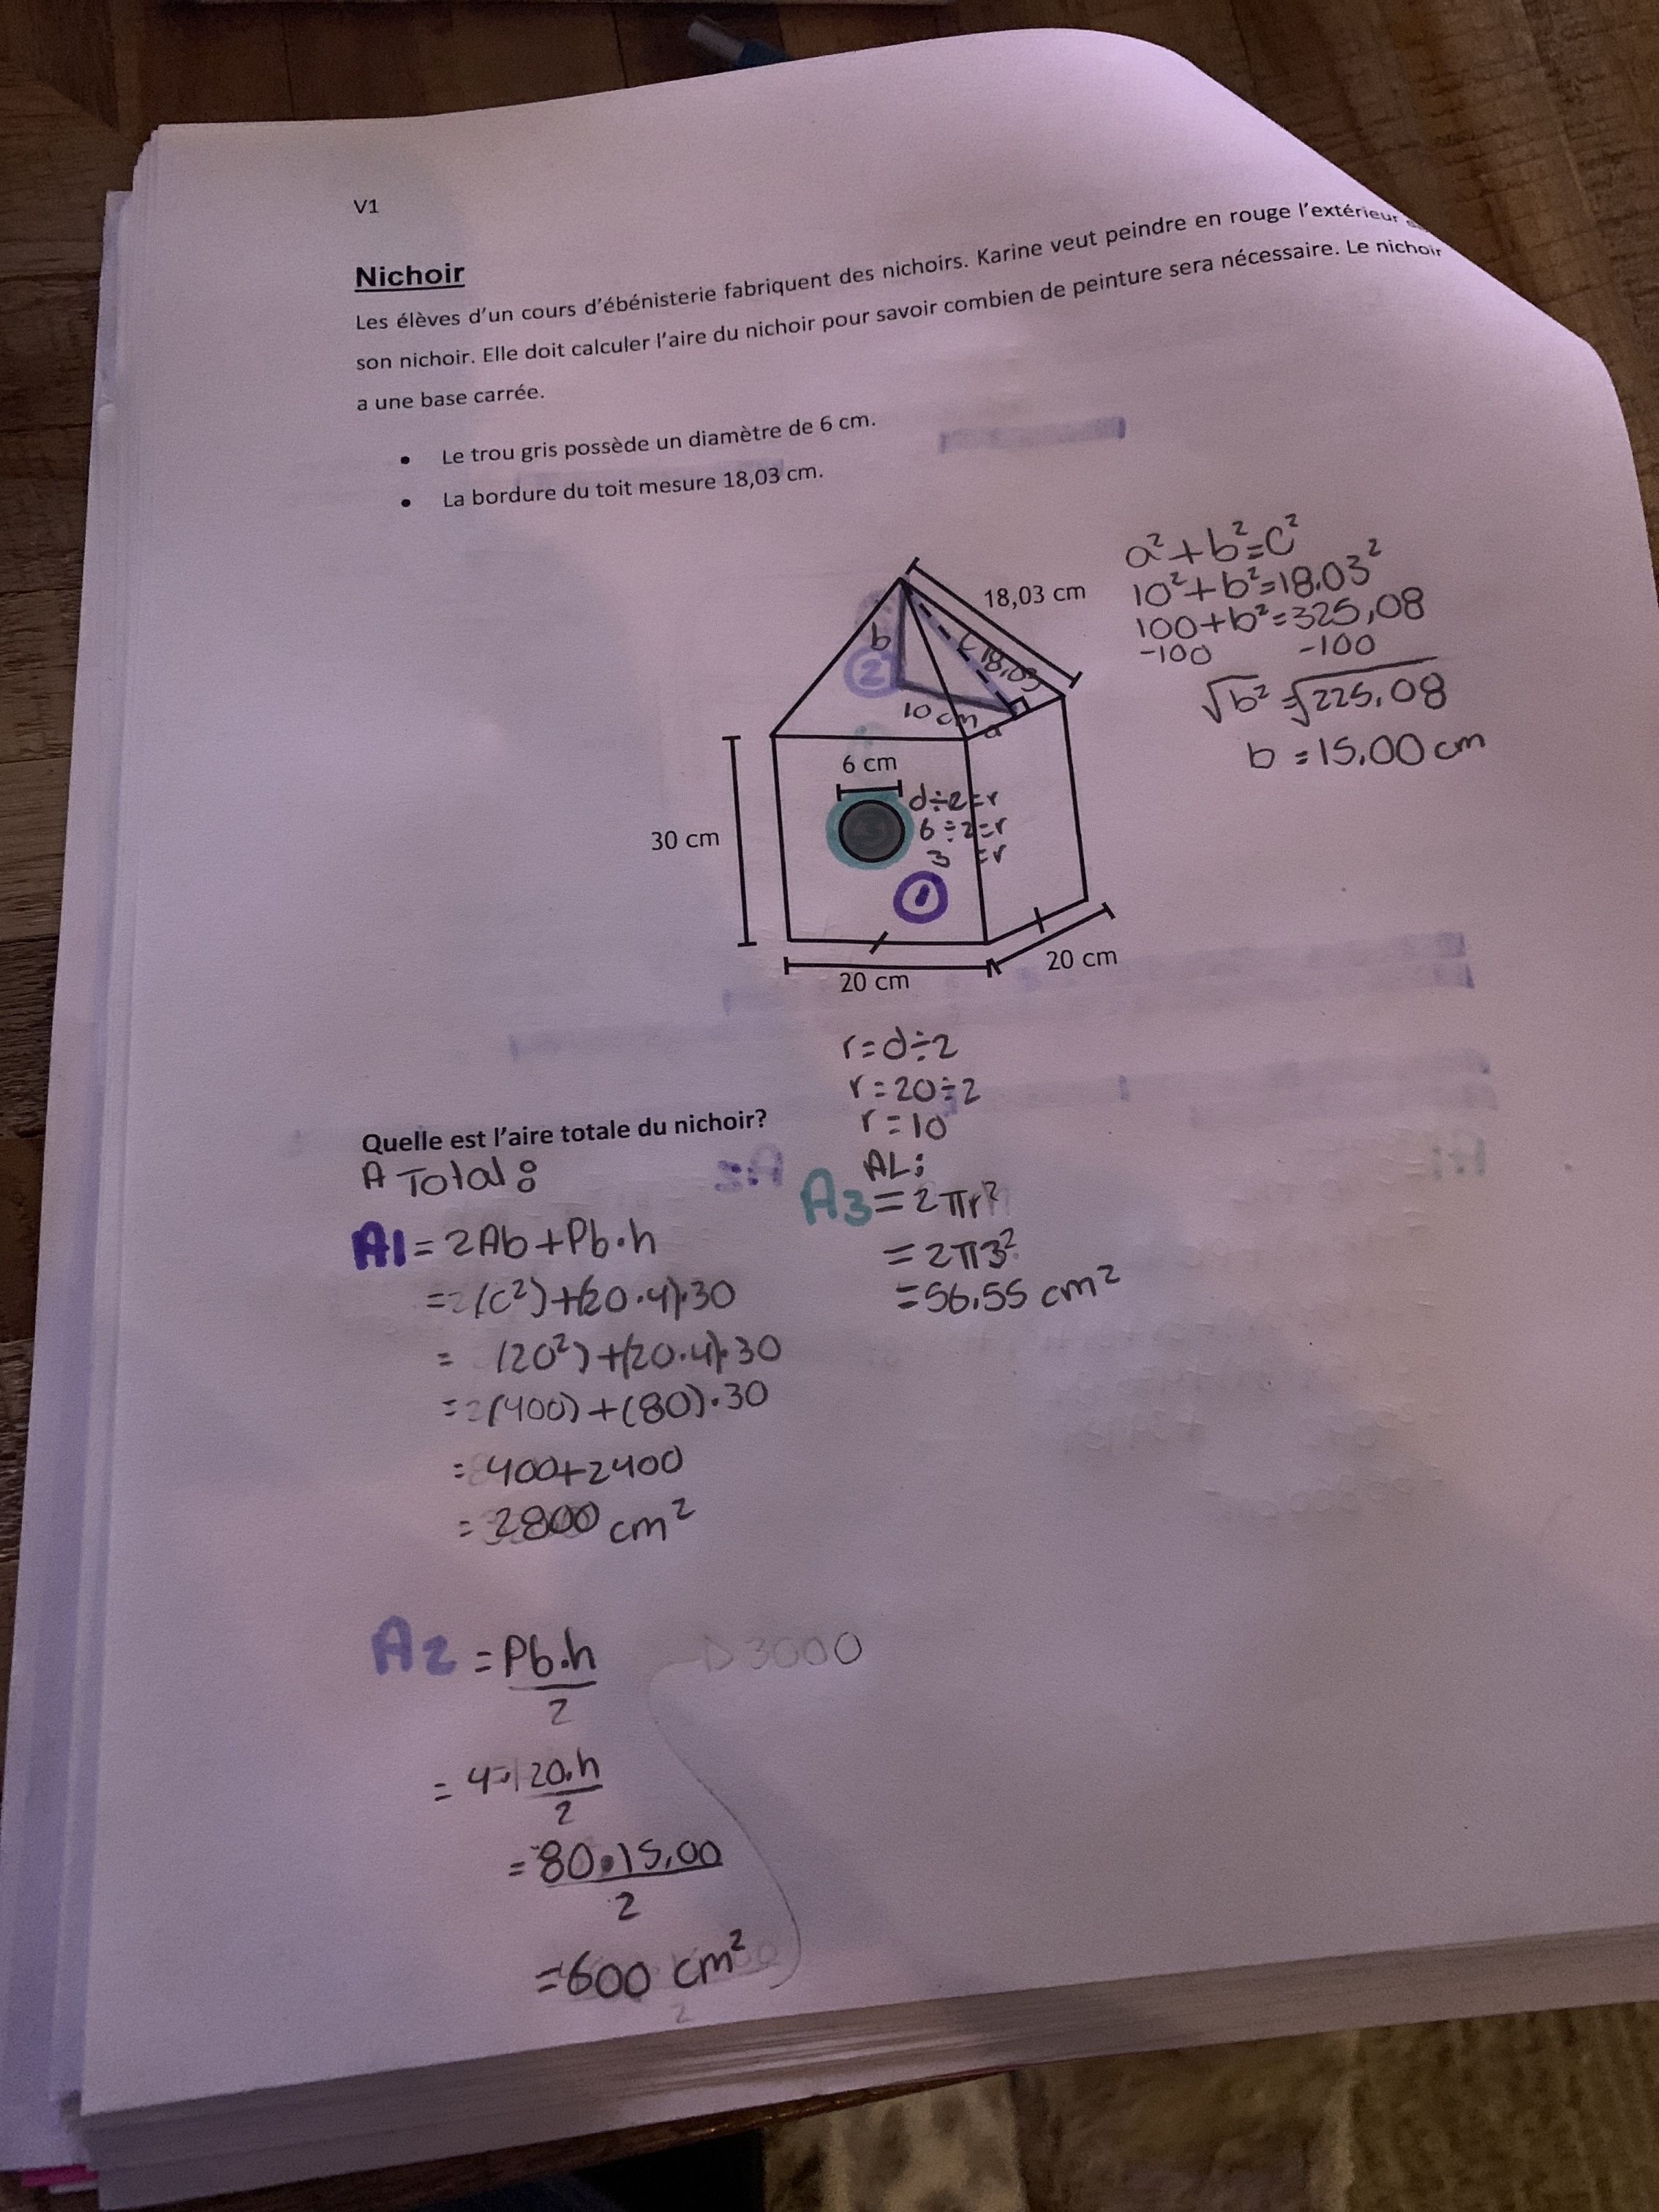 V1
Nichoir
Les élèves d'un cours d'ébénisterie fabriquent des nichoirs. Karine veut peindre en rouge l'extérieur
son nichoir. Elle doit calculer l'aire du nichoir pour savoir combien de peinture sera nécessaire. Le nichoir
a une base carrée.
• Le trou gris possède un diamètre de 6 cm.
• La bordure du toit mesure 18,03 cm.
a²+b²=c²
10²+b²=18.03²
100+b²=325,08
-100 -100
√b² = √225,08
b = 15,00 cm
18,03 cm
b
c 18.03
2
10 cm
a
6 cm
d÷2=r
6÷2=r
3 =r
30 cm
1
20 cm
20 cm
r=d÷2
r=20÷2
r=10
Quelle est l'aire totale du nichoir?
A Total:
A1 = 2Ab+Pb·h
=2(c²)+(20·4)·30
= (20²)+(20·4)·30
=2(400)+(80)·30
= 400+2400
= 2800 cm²
AL:
A3 = 2πr²
= 2π3²
= 56.55 cm²
A2 = Pb·h
2
= 4·20·h
2
= 80·15,00
2
=600 cm²
3000